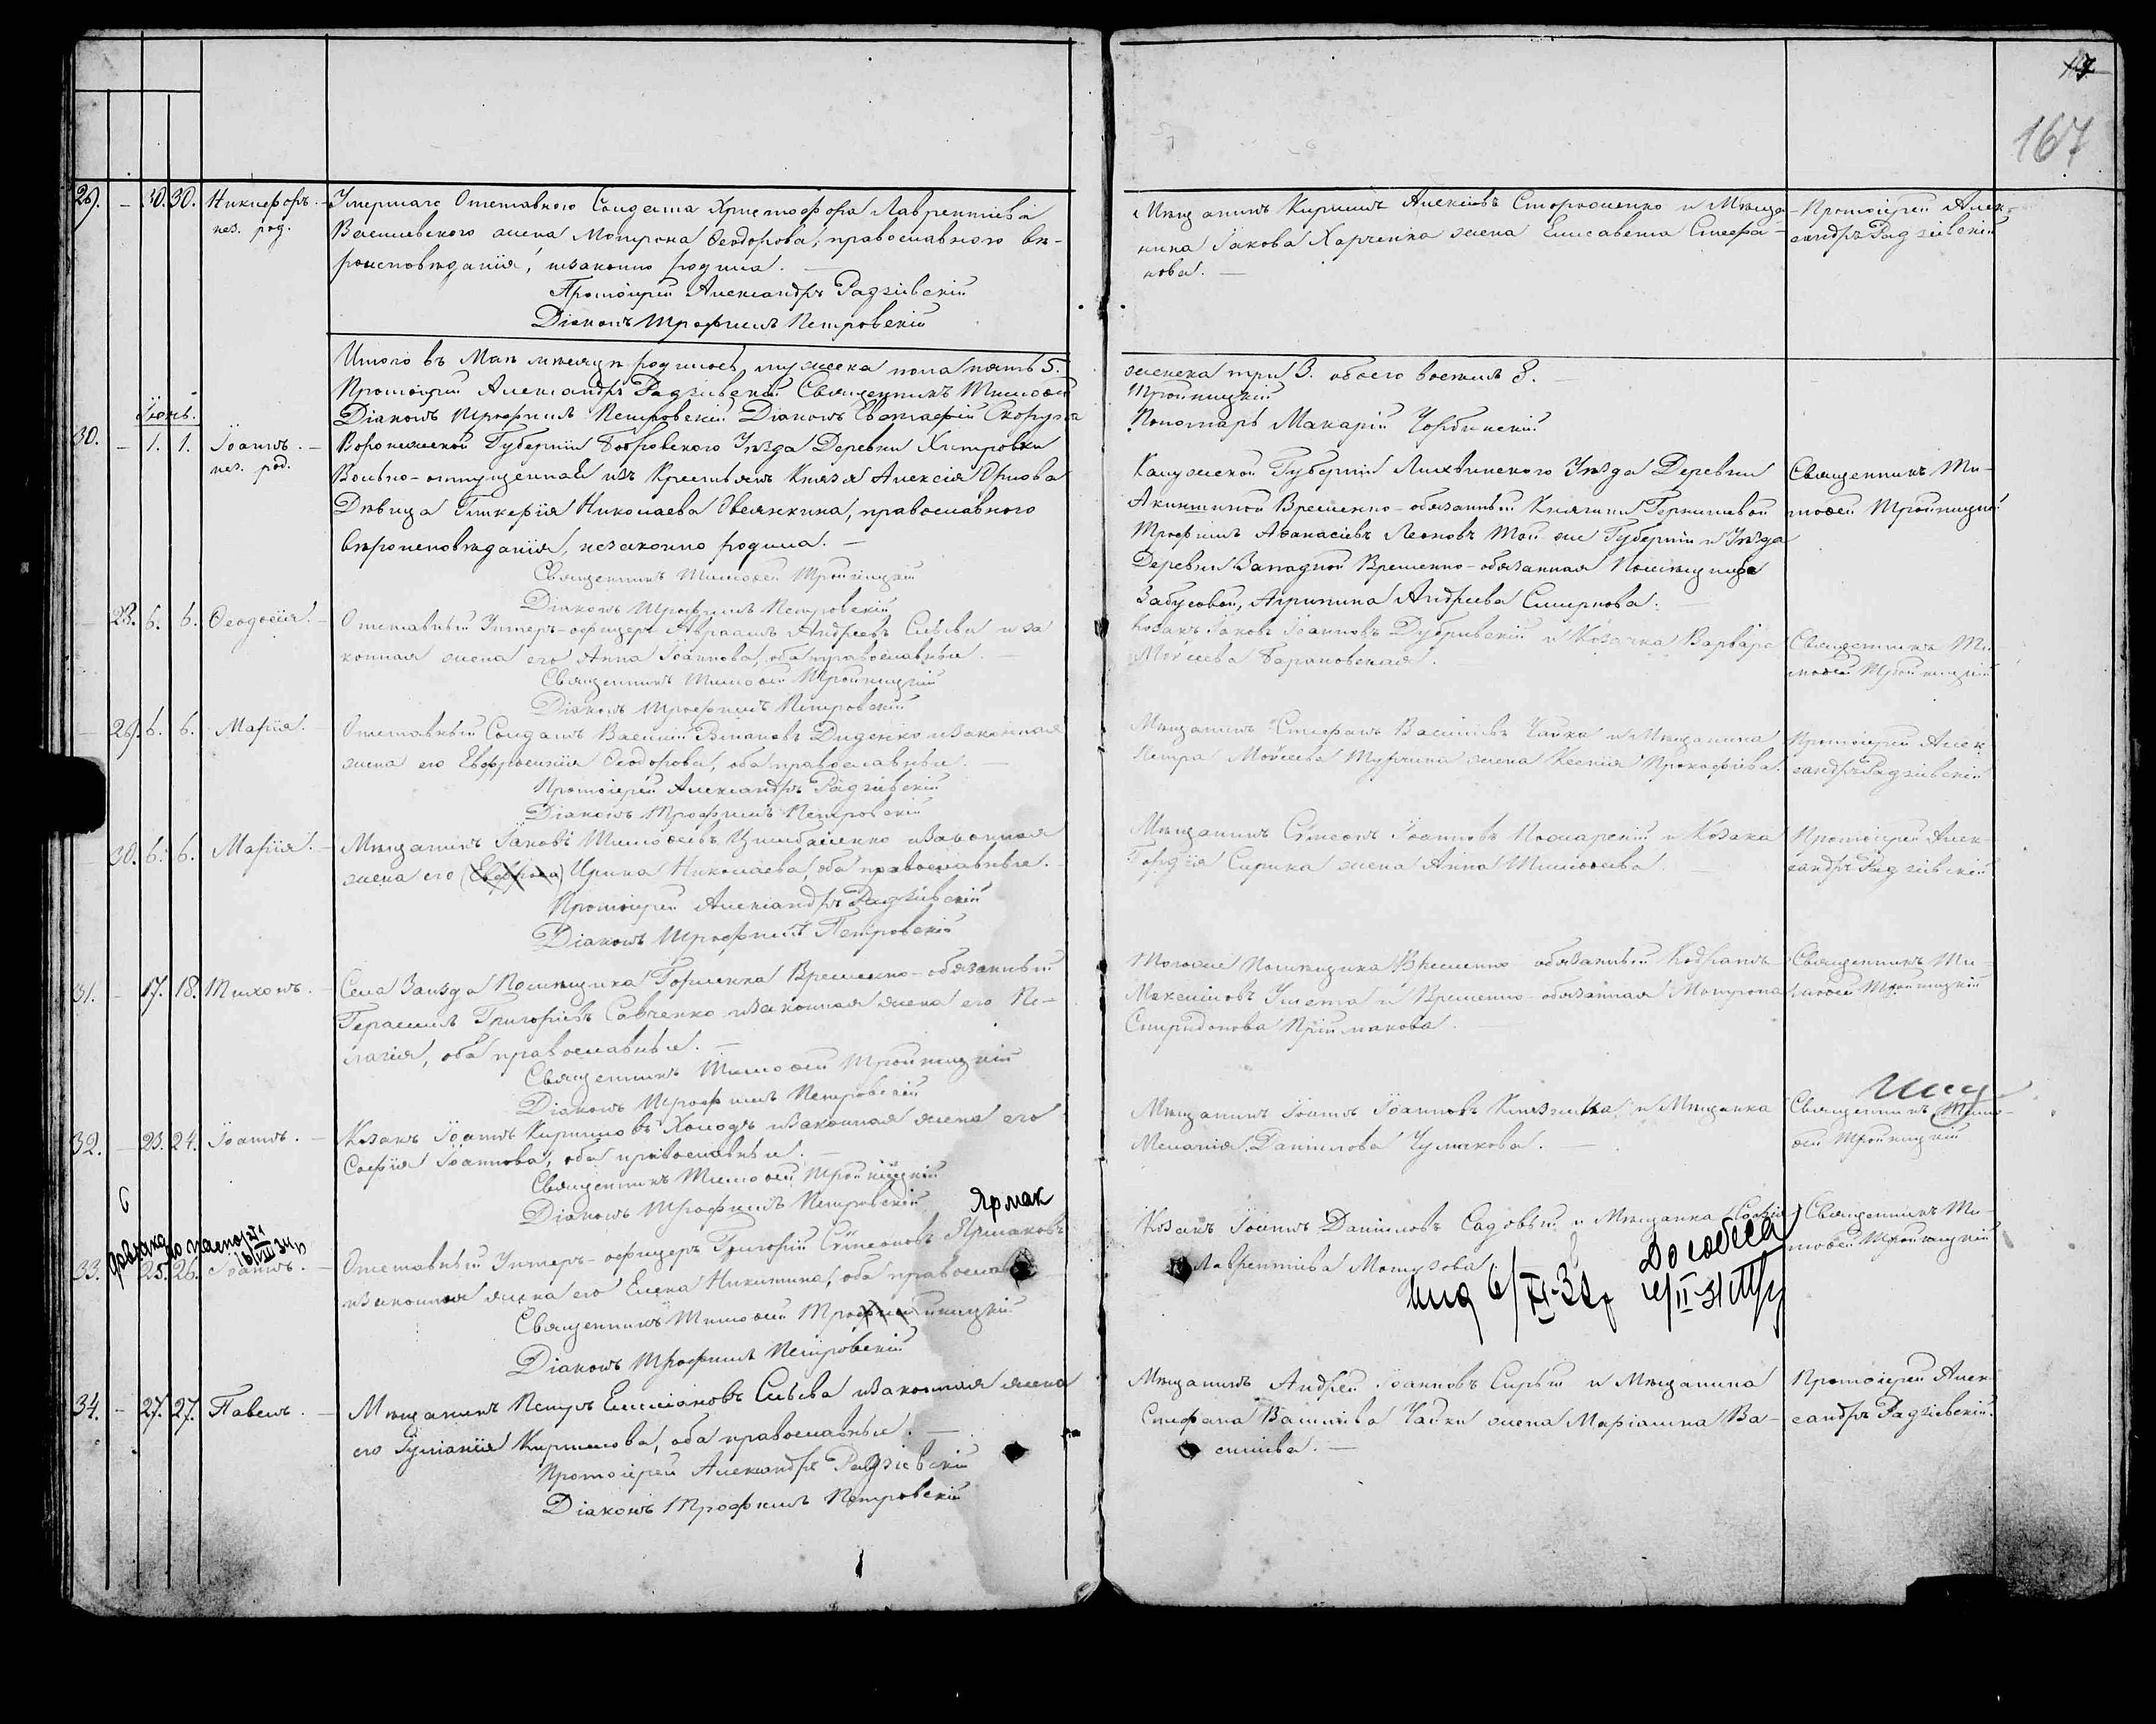 167
29. — 30. 30. Никифоръ. — Умершаго Отставного Солдата Христофора Лаврентіева
нез. род. Василевского жена Мотрона Ѳеодорова, православного вѣ-
роисповѣданія, незаконно родила. —
Протоіерей Александръ Радзіевскій
Діаконъ Трофимъ Петровскій
Мѣщанинъ Кириллъ Алексѣевъ Сторженко и Мѣща-
нина Іакова Харченка жена Елисавета Стефа-
нова. —
Протоіерей Алек-
сандръ Радзіевскій
Итого въ Маѣ мѣсяцѣ родилось мужеска пола пять 5.
женска три 3. обоего восемь 8. —
Протоіерей Александръ Радзіевскій Священникъ Тимоѳей
Тройницкій
Діаконъ Трофимъ Петровскій Діаконъ Евстафій
Пономарь Макарій
Іюнь.
30. — 1. 1. Іоаннъ. — Воронежской Губерніи Бобровского Уѣзда Деревни Хитровки
нез. род. Вольно-отпущенная изъ Крестьянъ Князя Алексія Орлова
Дѣвица Гликерія Николаева Овсянкина, православного
вѣроисповѣданія, незаконно родила. —
Священникъ Тимоѳей Тройницкій
Діаконъ Трофимъ Петровскій
Калужской Губерніи Лихвинского Уѣзда Деревни
Акиншиной Временно-обязанный Княгини
Трофимъ Аѳанасіевъ Леоновъ Той же Губерніи и Уѣзда
Деревни Западной Временно-обязанная Помѣщицы
Забусовой, Агрипина Андреева Смирнова. —
Священникъ Ти-
моѳей Тройницкій
— 28. 6. 6. Ѳеодосія. — Отставный Унтеръ-офицеръ Авраамъ Андреевъ и за-
конная жена его Анна Іоаннова, оба православные. —
Священникъ Тимоѳей Тройницкій
Діаконъ Трофимъ Петровскій
Козакъ Іаковъ Іоанновъ и Козачка Варвара
Моѵсеева Барановская. —
Священникъ Ти-
моѳей Тройницкій
— 29. 6. 6. Марія. — Отставный Солдатъ Василій Диденко и законная
жена его Евфросинія Ѳеодорова, оба православные. —
Протоіерей Александръ Радзіевскій
Діаконъ Трофимъ Петровскій
Мѣщанинъ Стефанъ Васильевъ Чайка и Мѣщанина
Петра Моѵсеева Турчина жена Ксенія Прокофіева.
Протоіерей Алек-
сандръ Радзіевскій
— 30. 6. 6. Марія. — Мѣщанинъ Іаковъ Тимоѳеевъ Цимбаленко и законная
жена его Ирина Николаева, оба православные. —
Протоіерей Александръ Радзіевскій
Діаконъ Трофимъ Петровскій
Мѣщанинъ Сѵмеонъ Іоанновъ и Козака
Гордія Сирика жена Анна Тимоѳеева. —
Протоіерей Алек-
сандръ Радзіевскій
31. — 17. 18. Тихонъ. — Села Заѣзда Помѣщика Горленка Временно-обязанный
Герасимъ Григорьевъ Савченко и законная жена его Пе-
лагія, оба православные. —
Священникъ Тимоѳей Тройницкій
Діаконъ Трофимъ Петровскій
Тогоже Помѣщика Временно-обязанный Кодратъ
Максимовъ и Временно-обязанная Мотрона
Спиридонова Пріймакова. —
Священникъ Ти-
моѳей Тройницкій
32. — 23. 24. Іоаннъ. — Козакъ Іоаннъ Кирилловъ Холодъ и законная жена его
Софія Іоаннова, оба православные. —
Священникъ Тимоѳей Тройницкій
Діаконъ Трофимъ Петровскій
Мѣщанинъ Іоаннъ Іоанновъ и Мѣщанка
Меланія Данилова Чумакова. —
Священникъ Тимо-
ѳей Тройницкій
Ярмак
33. — 25. 26. Іоаннъ. — Отставный Унтеръ-офицеръ Григорій Сѵмеоновъ Ярмаковъ
и законная жена его Елена Никитина, оба православ
Священникъ Тимоѳей Тройницкій
Діаконъ Трофимъ Петровскій
Козакъ Іоаннъ Даниловъ Садовый и Мѣщанка Софія
Лаврентіева Мотузова.
Священникъ Ти-
моѳей Тройницкій
34. — 27. 27. Павелъ. — Мѣщанинъ Петръ Емиліановъ и законная жена
его Іуліанія Кириллова, оба православные. —
Протоіерей Александръ Радзіевскій
Діаконъ Трофимъ Петровскій
Мѣщанинъ Андрей Іоанновъ Сирый и Мѣщанина
Стефана Василіева Чайки жена Маріанна Ва-
силіева. —
Протоіерей Алек-
сандръ Радзіевскій.